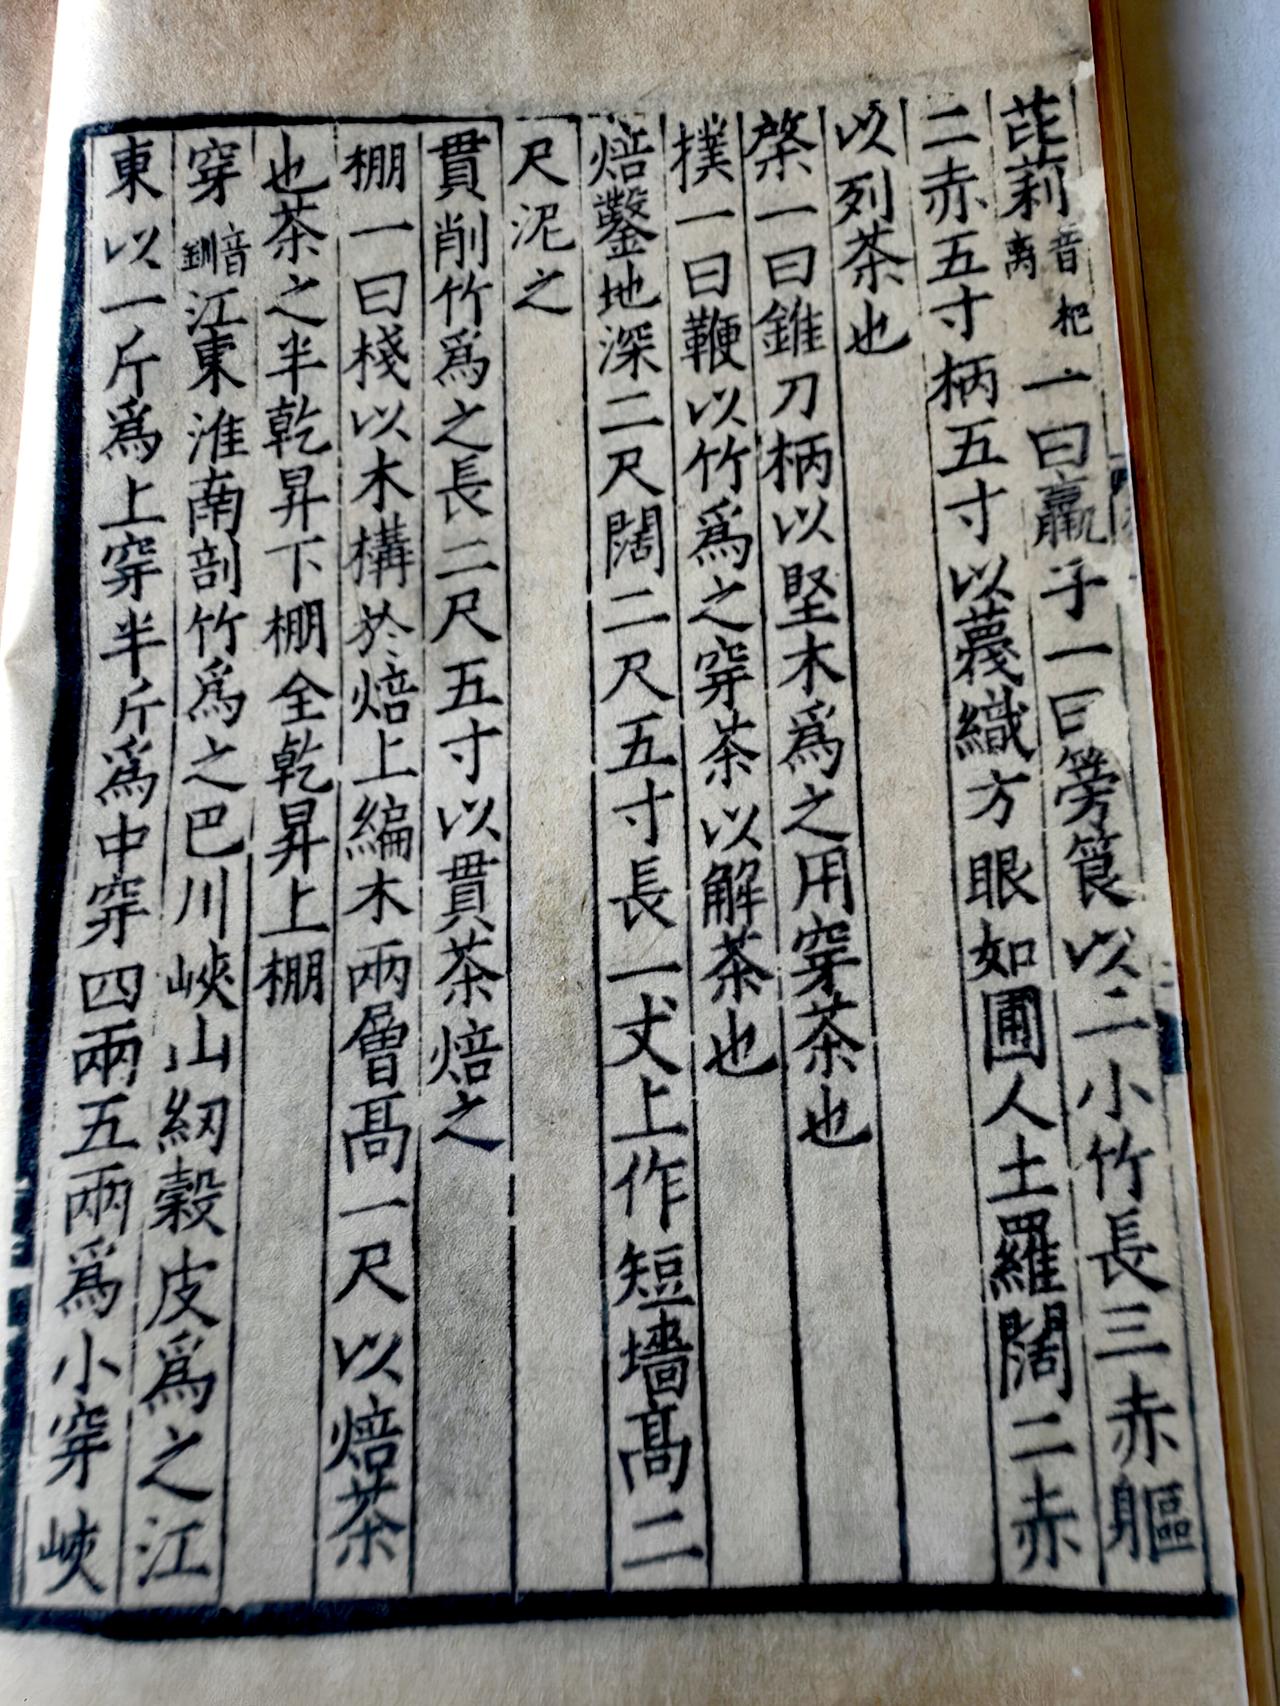 芘莉音杷离一曰羸子一曰筹筤以二小竹長三赤軀
二赤五寸柄五寸以篾織方眼如圃人土羅闊二赤
以列茶也
棨一曰錐刀柄以堅木爲之用穿茶也
撲一曰鞭以竹爲之穿茶以解茶也
焙鑿地深二尺闊二尺五寸長一丈上作短墻髙二
尺泥之
貫削竹爲之長二尺五寸以貫茶焙之
棚一曰棧以木構於焙上編木兩層髙一尺以焙茶
也茶之半乾昇下棚全乾昇上棚
穿音釧江東淮南剖竹爲之巴川峽山紉穀皮爲之江
東以一斤爲上穿半斤爲中穿四兩五兩爲小穿峽